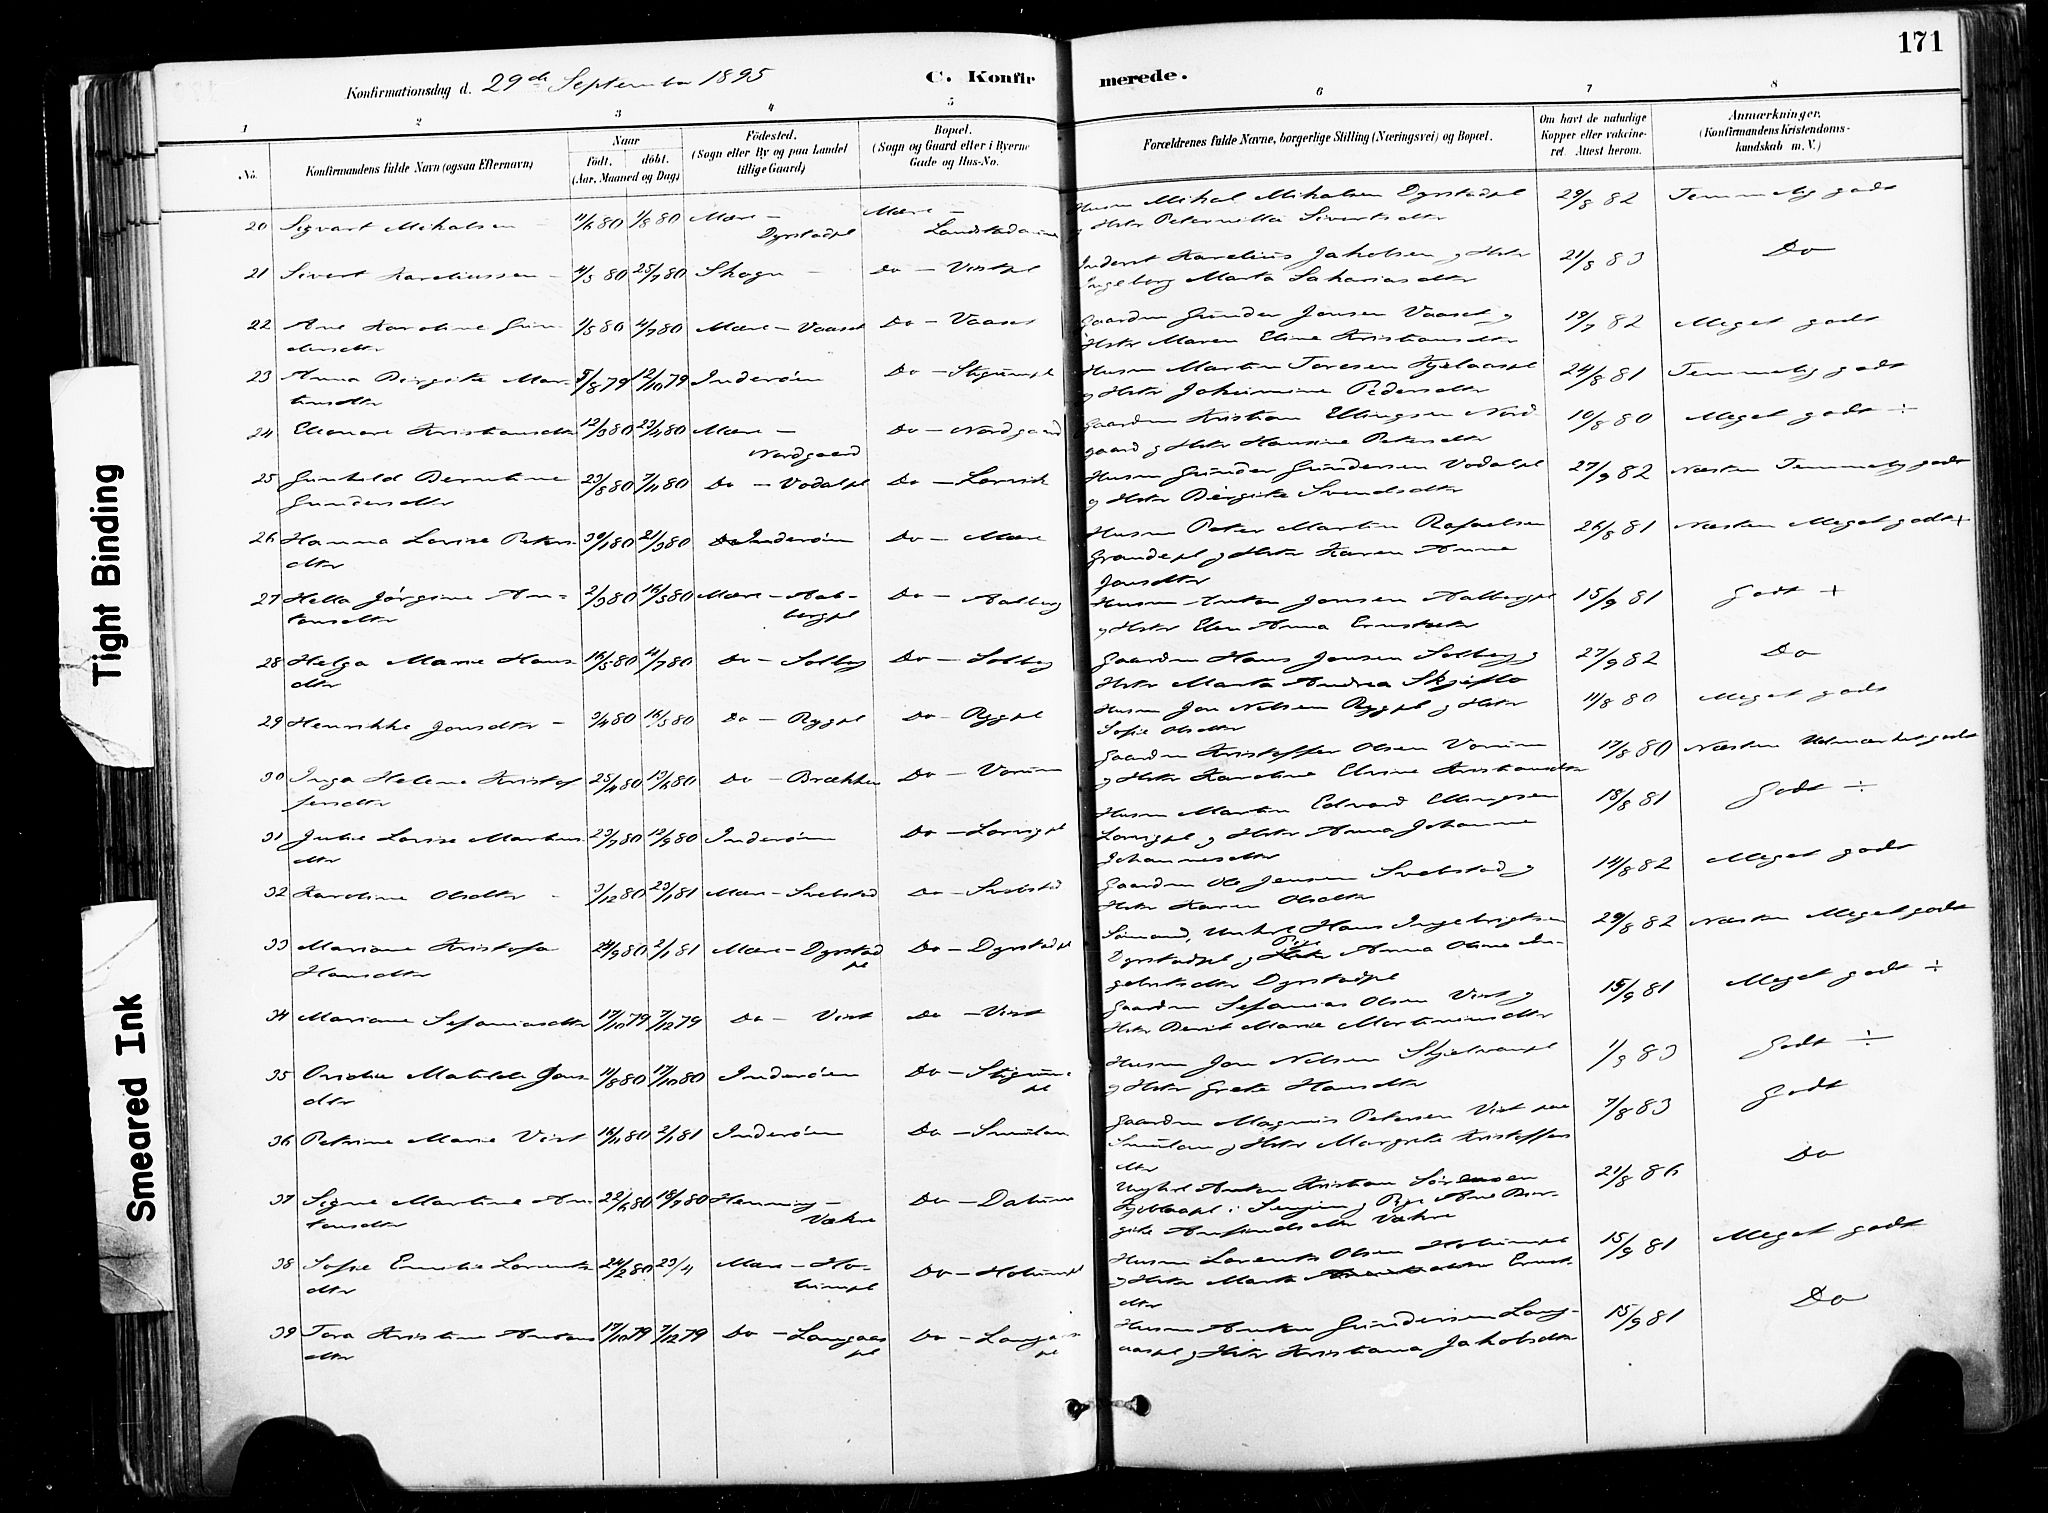 171
Konfirmationsdag d. 29de September 1895
C. Konfirmerede.
1 2 3 4 5 6 7 8
No.
Konfirmandens fulde Navn (ogsaa Efternavn)
Naar
födt. döbt.
(Aar, Maaned og Dag)
Födested.
(Sogn eller By og paa Landet
tillige Gaard)
Bopæl.
(Sogn og Gaard eller i Byerne
Gade og Hus-No.
Forældrenes fulde Navne, borgerlige Stilling (Næringsvei) og Bopæl.
Om havt de naturlige
Kopper eller vakcine-
ret. Attest herom.
Anmærkninger.
(Konfirmandens Kristendoms-
kundskab m. V.)
20 Sigvart Mihalsen 11/6 80 1/8 80 Mære - Dyrstadpl Mære -
Husm Mihal Mihalsen Dyrstadpl
og Hstr Peternilla Sivertsdtr
29/8 82 Temmelig godt
21 Sivert Kareliussen 4/5 80 25/7 80 Skogn Do - Vistpl
Inderst Karelius Jakobsen og Hstr
Ingeborg Marta Sakariasdtr
21/8 83 Do
22 Ane Karoline Gun-
dersdtr 1/5 80 4/7 80 Mære - Vaaset Do - Vaaset
Gaardm Gunder Jensen Vaaset og
Hstr Maren Eline Kristiansdtr
19/7 82 Meget godt
23 Anna Birgitte Mar-
tinsdtr 5/8 79 12/10 79 Inderøen Do -
Husm Martin Toresen
og Hstr Pedersdtr
24/8 81 Temmelig godt
24 Eleonore Kristiansdtr 12/3 80 23/4 80 Mære - Nordgaard Do - Nordgaard
Gaardm Kristian Ellingsen Nord-
gaard og Hstr Hansine Petersdtr
10/8 80 Meget godt ÷
25 Gunhild Berntine
Gundersdtr 23/8 80 7/11 80 Do - Vodalpl Do - Lorvik
Husm Gunder Gundersen Vodalpl
og Hstr Birgitte Svendsdtr
27/9 82 Næsten Temmelig godt
26 Hanna Lovise Peters-
dtr 30/1 80 21/3 80 Inderøen Do - Mære
Husm Peter Martin Rafaelsen
Grandepl og Hstr Karen Anna
Jonsdtr
26/8 81 Næsten Meget godt +
27 Hella Jørgine An-
tonsdtr 2/3 80 16/5 80 Mære - Aal-
bergpl Do - Aalberg
Husm Anton Jonsen Aalbergpl
og Hstr Elen Anna
15/9 81 Godt +
28 Helga Marie Hans-
dtr 16/5 80 4/7 80 Do - Solberg Do - Solberg
Gaardm Hans Jensen Solberg og
Hstr Marta Andrea Skjeflo
27/9 82 Do
29 Henrikke Jonsdtr 3/4 80 16/5 80 Do - Rygpl Do - Rygpl
Husm Jon Nilsen Rygpl og Hstr
Sofie Olsdtr
11/8 80 Meget godt
30 Inga Helene Kristof-
fersdtr 25/4 80 13/6 80 Do - Brækken Do -
Gaardm Kristoffer Olsen
og Hstr Karoline Kristiansdtr
17/8 80 Næsten Udmærket godt
31 Julie Lovise Martins-
dtr 23/7 80 12/9 80 Inderøen Do - Lorvigpl
Husm Martin Edvard Ellingsen
Lorvigpl og Hstr Anna Johanna
Johannesdtr
18/8 81 Godt ÷
32 Karoline Olsdtr 3/12 80 23/1 81 Mære - Svebstad Do - Svebstad
Gaardm Ole Jensen Svebstad og
Hstr Karen Olsdtr
14/8 82 Meget godt
33 Mariane Kristofa
Hansdtr 24/9 80 2/1 81 Mære - Dyrstad
pl Do - Dyrstadpl
Sømand, Ungkarl Hans Ingebrigtsen
Dyrstadpl og Pige Anna Oline In-
gebrigtsdtr Dyrstadpl
29/8 82 Næsten Meget godt
34 Mariane Sefaniasdtr 17/10 79 7/12 79 Do - Vist Do - Vist
Gaardm Sefanias Olsen Vist og
Hstr Berit Marie Martiniusdtr
15/9 81 Meget godt ÷
35 Matilde Jons-
dtr 11/8 80 17/10 80 Inderøen Do -
pl
Husm Jon Nilsen
og Hstr Grete Hansdtr
1/9 83 Godt ÷
36 Petrine Marie Vist 16/11 80 2/1 81 Inderøen Do - Smulan
Gaardm Magnus Petersen Vist paa
Smulan og Hstr Margrete Kristoffers-
dtr
7/8 83 Godt
37 Signe Martine An-
tonsdtr 22/6 80 18/7 80 Henning - Do -
Ungkarl Anton Kristian Sørensen
Pige Ane Bir-
gitte
21/8 86 Do
38 Sofie Emilie Lorents-
dtr 24/2 80 23/4 Mære - Do -
Husm Lorents Olsen
og Hstr Marta
dtr
15/9 81 Meget godt
39 Tora Kristine Antons-
dtr 17/10 79 7/12 79 Do - Langaas
pl Do - Langaas
pl
Husm Anton Gundersen Lang-
aaspl og Hstr Kristiana Jakobsdtr
15/9 81 Do
Tight Binding
Smeared Ink